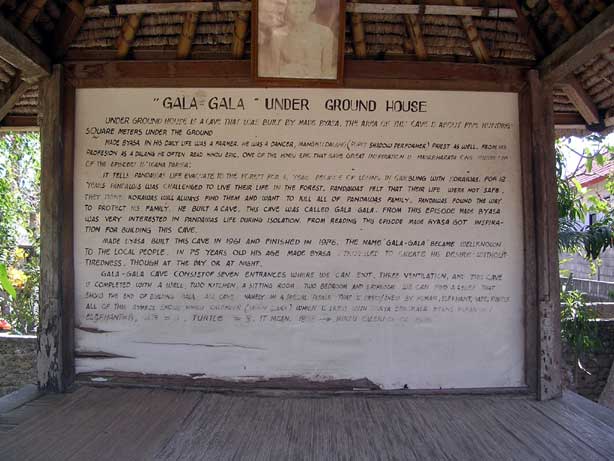 "GALA-GALA" UNDER GROUND HOUSE
UNDER GROUND HOUSE IS A CAVE THAT WAS BUILT BY MADE BYASA. THE AREA OF THIS CAVE IS ABOUT FIVE HUNDRED
SQUARE METERS UNDER THE GROUND
MADE BYASA IN HIS DAILY LIFE WAS A FARMER. HE WAS A DANCER, (PUPET SHADOW PERFORMER) PRIEST AS WELL. FROM HIS
PROFESION AS A DALANG HE OFTEN READ HINDU EPIC. ONE OF THE HINDU EPIC THAT GAVE GREAT INSPIRATION IS MAHABHARATA
OF THE EPISODES IS WANA PARWA.
IT TELLS PANDAWAS LIFE EVACUATE TO THE FOREST FOR YEAR BECAUSE OF LOSING IN GAMBLING WITH KORAWAS. FOR 12
YEARS PANDAWAS WAS CHALLENGED TO LIVE THEIR LIFE IN THE FOREST. PANDAWAS FELT THAT THEIR LIFE WERE NOT SAFE.
THEY KORAWAS WILL ALWAYS FIND THEM AND WANT TO KILL ALL OF PANDAWAS FAMILY. PANDAWAS FOUND THE WAY
TO PROTECT HIS FAMILY. HE BUILT A CAVE. THIS CAVE WAS CALLED GALA GALA. FROM THIS EPISODE MADE BYASA
WAS VERY INTERESTED IN PANDAWAS LIFE DURING ISOLATION. FROM READING THIS EPISODE MADE BYASA GOT INSPIRA-
TION FOR BUILDING THIS CAVE.
MADE BYASA BUILT THIS CAVE IN 1961 AND FINISHED IN 1976. THE NAME "GALA-GALA" BECAME WELLKNOWN
TO THE LOCAL PEOPLE. IN 75 YEARS OLD HIS AGE MADE BYASA TO CREATE HIS DESIRE WITHOUT
TIREDNESS. THOUGH AT THE DAY OR AT NIGHT.
GALA-GALA CAVE CONSIST OF SEVEN ENTRANCES WHERE WE CAN EXIT, THREE VENTILATION, AND THIS CAVE
IS COMPLETED WITH A WELL, TWO KITCHEN, A SITTING ROOM, TWO BEDROOM AND WE CAN FIND A RELIEF THAT
SHOWS THE END OF BUILDING GALA GALA CAVE. NAMELY IN A SPECIAL THAT IS SYMBOLIZED BY HUMAN, ELEPHANT,
ALL OF THIS SYMBOL HINDU CALENDER
ELEPHANT TURTLE IT MEAN HINDU